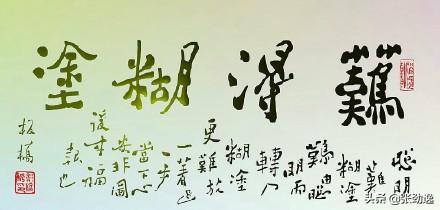 難得糊塗
聰明
難
糊塗
難由聰
明而
轉入
糊塗
更難放
一著退
一步
當下心
安非圖
後來福
報也
板橋
头条 @张劲逸